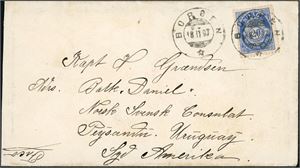 BORGEN
18 II 97
BORGEN
20
Kapt H. Grændsen
Adrs. Bark "Daniel"
Norsk Svensk Consulat
Paysandu, Uruguay
Syd Amerika.